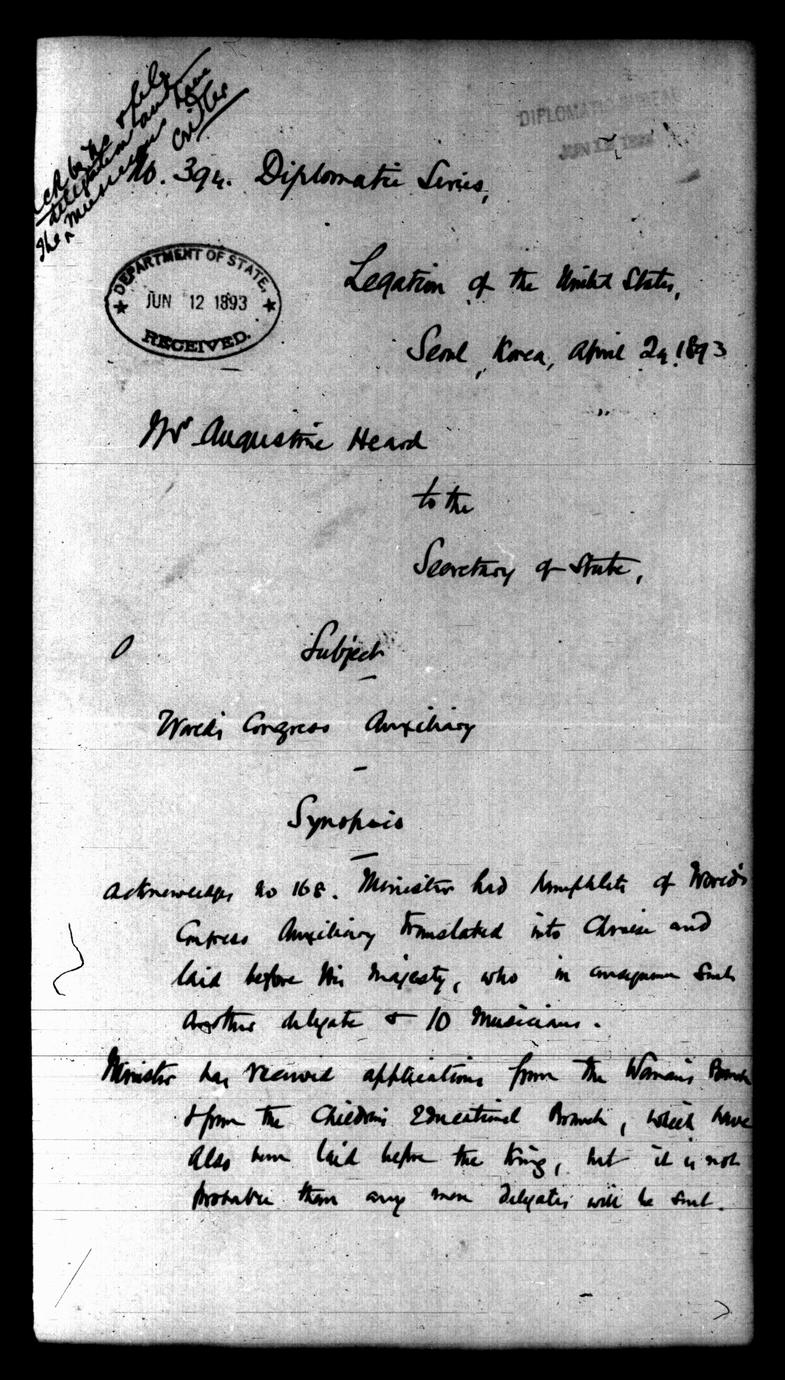 ack & file
delegation and have
the musicians
No. 394. Diplomatic Series,
DIPLOMATIC BUREAU
JUN 12 1893
DEPARTMENT OF STATE,
JUN 12 1893
RECEIVED.
Legation of the United States,
Seoul, Korea, April 29. 1893
Mr Augustine Heard
to the
Secretary of State,
Subject
World's Congress Auxiliary
Synopsis
Acknowledges No 168. Minister had pamphlets of World's
Congress Auxiliary translated into Chinese and
laid before His Majesty, who in consequence sends
another delegate & 10 musicians.
Minister has received applications from the Woman's Branch
& from the Children's Educational Branch, which have
also been laid before the King, but it is not
probable that any more delegates will be sent.